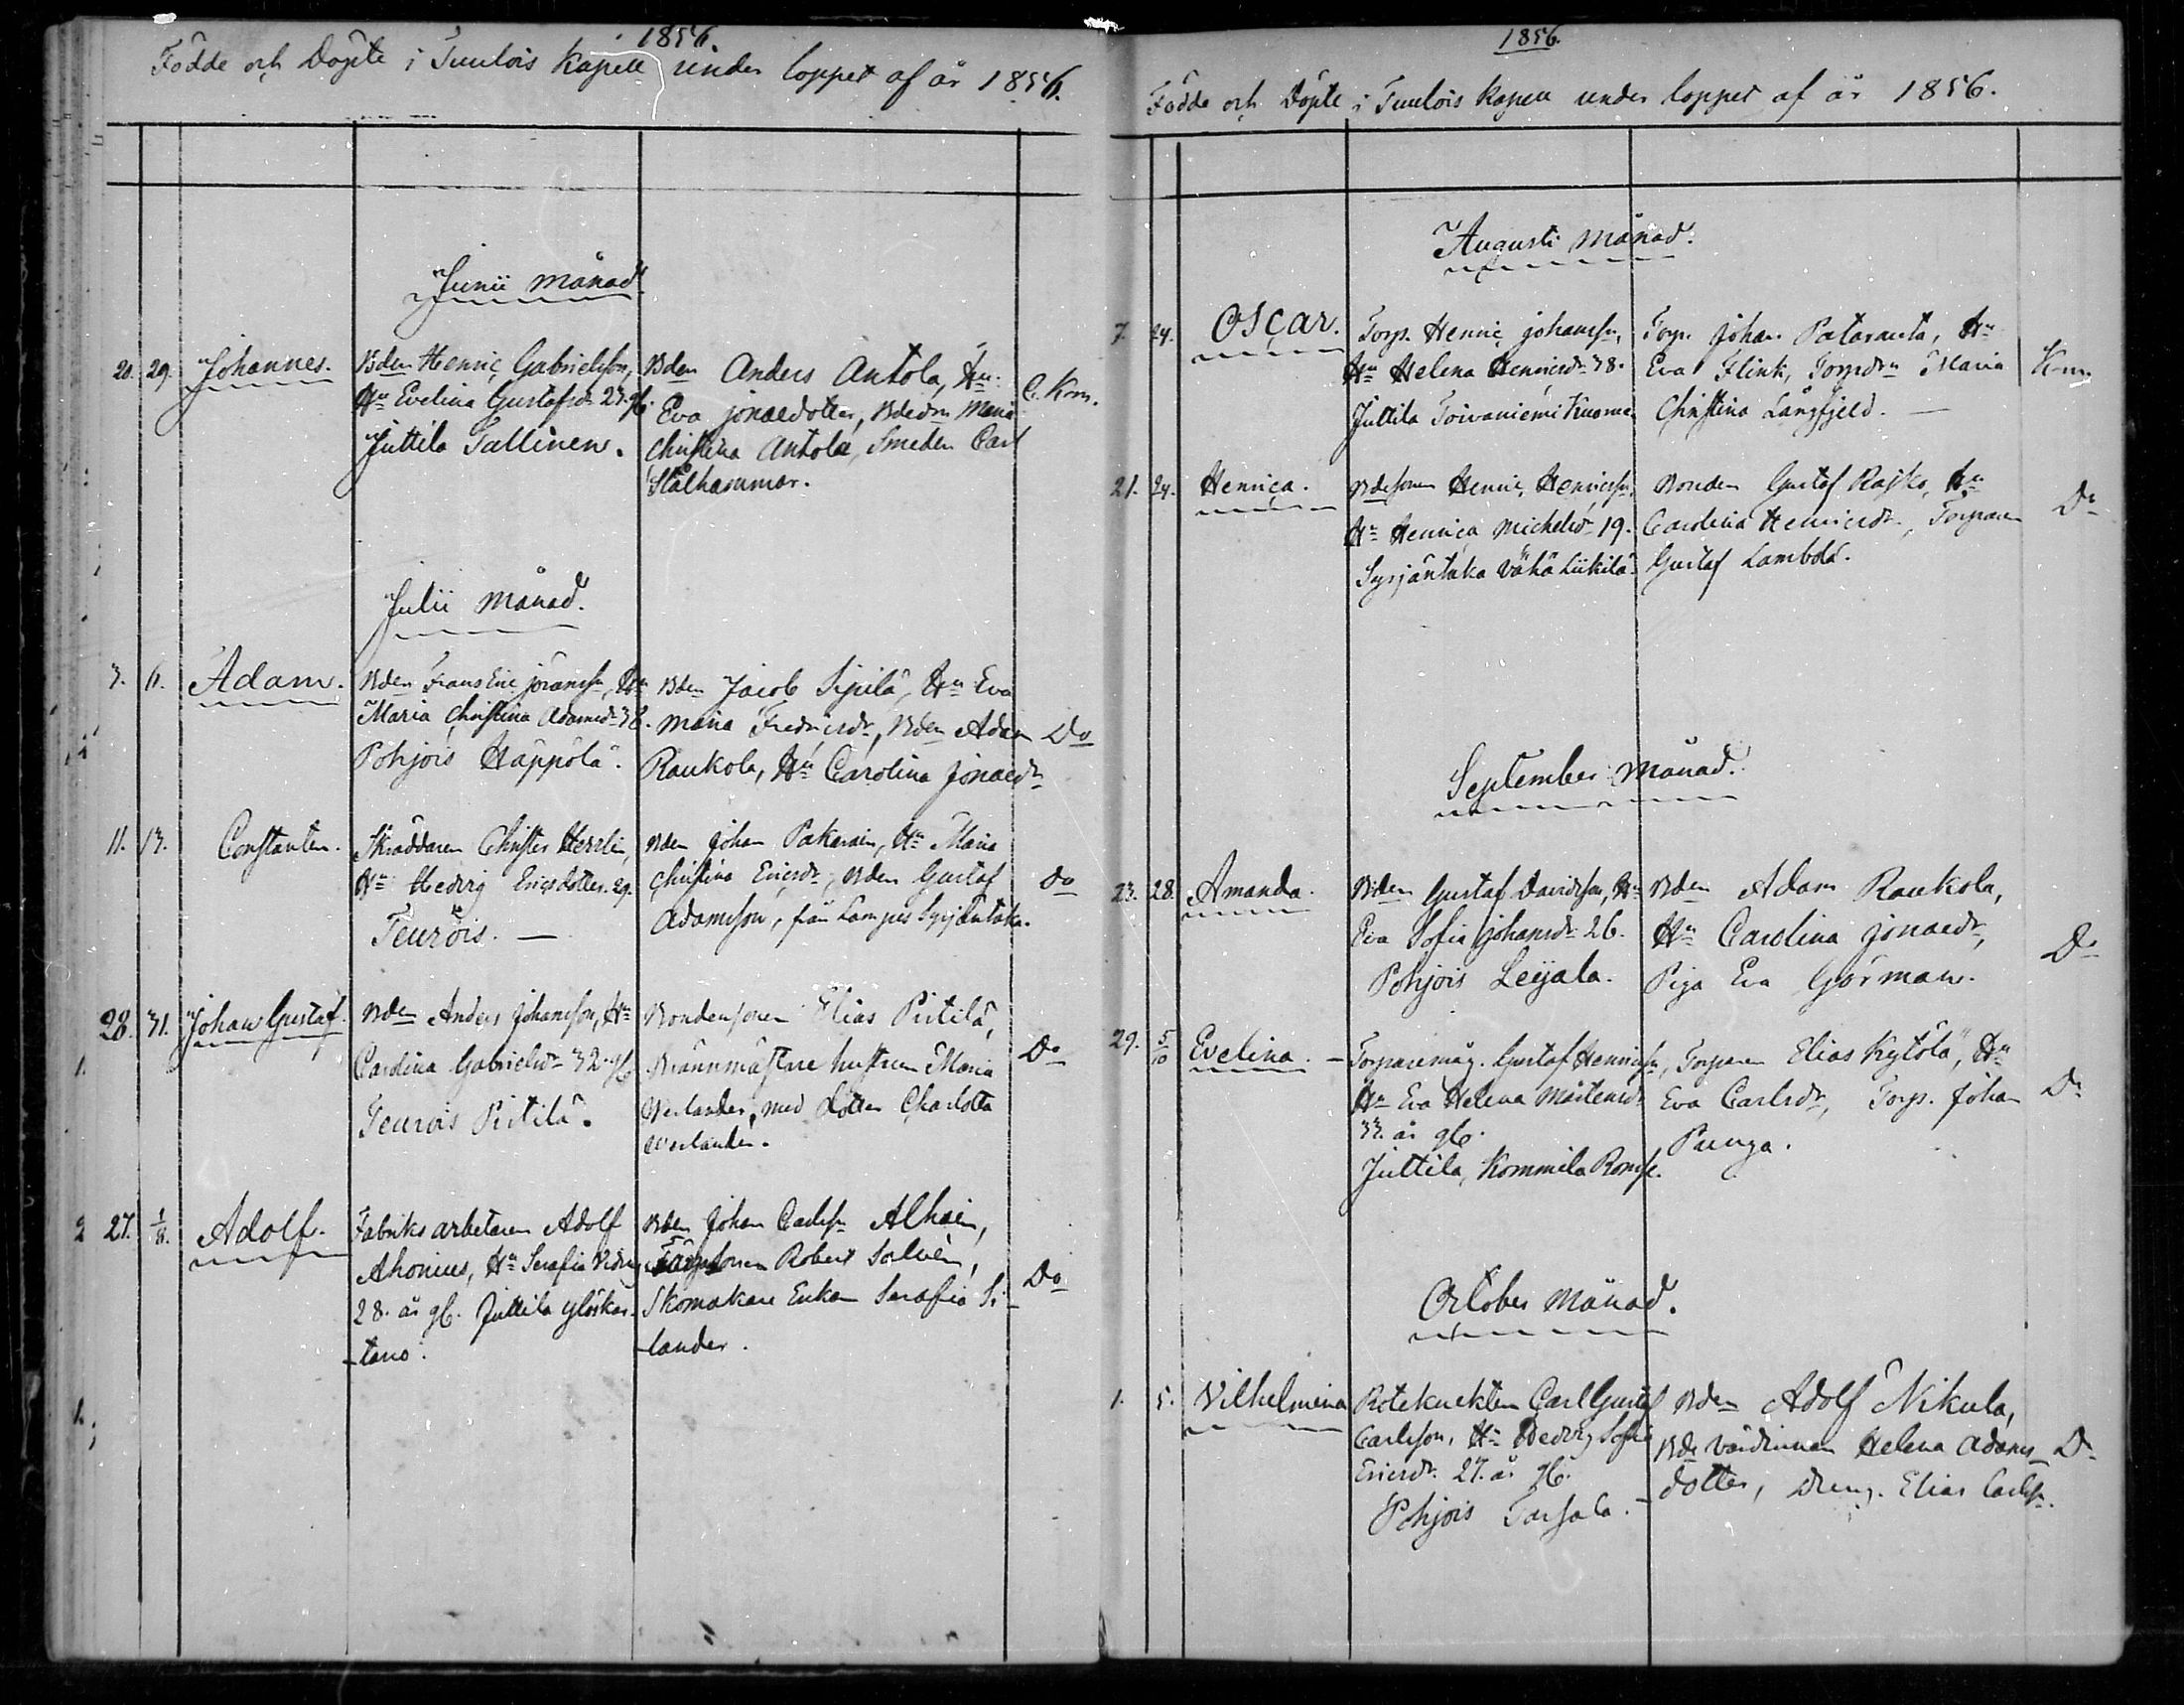 1856.
Födde och Döpte i Tuulois Kapell under loppet af år 1856.
Junii månad
20. 29. Johannes.
Bden Henric Gabrielsson,
Hu Evelina Gustafsdr 23. gl.
Juttila Tallinen.
Bden Anders Antola, Hu
Eva Jonaedotter, Bdedr Maria
Christina Antola, Smeden Carl
Stålhammar.
C. Km.
Julii månad.
3. 6. Adam.
Bden Frans Eric Joransn, Hu
Maria Christina Adamsdr 36.
Pohjois Häppölä.
Bden Jacob Sipilä, Hu Eva
Maria Fredricsdr, Bden Adam
Raukola, Hu Carolina Jonaedr
Do
11. 13. Constantin.
Skräddaren Christer Herrlin,
Hu Hedvig Ericsdotter. 29.
Teurois. —
Bden Johan Pakarain, Hu Maria
Christina Ericsdr, Bden Gustaf
Adamsson, från Lampis Syrjäntaka.
do
28. 31. Johan Gustaf.
Bden Anders Johansson, Hu
Carolina Gabrielsdr 32. gl
Teurois Pirtilä.
Bondensonen Elias Pirtilä,
Brännmästare hustrun Maria
Werlander, med dotter Charlotta
Werlander.
Do
2 27. 1/8. Adolf.
Fabriks arbetaren Adolf
Ahonius, Hu Serafia
28. år gl. Juttila
-tano.
Bden Johan Carlsn Alhain,
Robert Salvén,
Skomakare Enkan Serafia Si-
-lander.
Do
1856.
Födde och Döpte i Tuulois Kapell under loppet af år 1856.
Augusti månad.
7. 24. Oscar.
Torp. Henric Johanssn,
Hu Helena Henricsdr 38.
Juttila Toivaniemi Kuoma
Torp. Johan Pataranta, Hu
Eva Flink, Torpdrn Maria
Christina Långfjeld. —
Km.
21. 24. Henrica.
Bdesonen Henric Henricssn,
Hu Henrica Michelsdr 19.
Syrjäntaka Vähä Liikilä
Bonden Gustaf Rajko, Hu
Carolina Henricsdr, Torparen
Gustaf Lambola.
Do
September månad.
23. 28. Amanda.
Bden Gustaf Davidsson, Hu
Eva Sofia Johansdr 26.
Pohjois Leijala.
Bden Adam Raukola,
Hu Carolina Jonaedr,
Piga Eva Görman.
Do
29. 5/10 Evelina. —
Torparemåg. Gustaf Henricssn,
Hu Eva Helena Mårtensdr
33. år gl.
Juttila, Kommila
Torparen Elias Kytölä, Hu
Eva Carlsdr, Torp. Johan
Punga.
Do
October månad.
1. 5. Vilhelmina
Rotekneckten Carl Gustaf
Carlsson, Hu Hedvig Sofia
Ericsdr. 27. år gl.
Pohjois Tarsala. —
Bden Adolf Nikula,
Bde värdinnan Helena Adams-
dotter, Dreng. Elias Carlsn.
Do